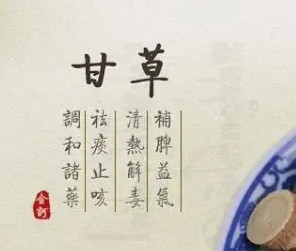 甘草
補脾益氣
清熱解毒
祛痰止咳
調和諸藥